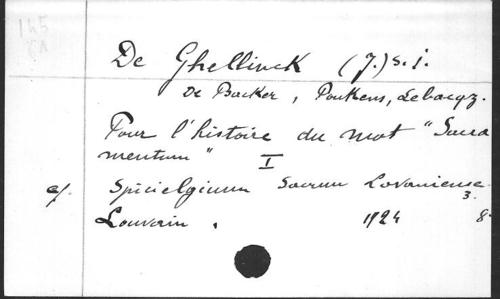 145
De Ghellinck (J.) s.j.
De Backer, Poukens, Lebacqz.
Pour l'histoire du mot "Sacra
mentum" I
Spicielgicum Sacrum Lovaniense
3.
Louvain. 1924 8°